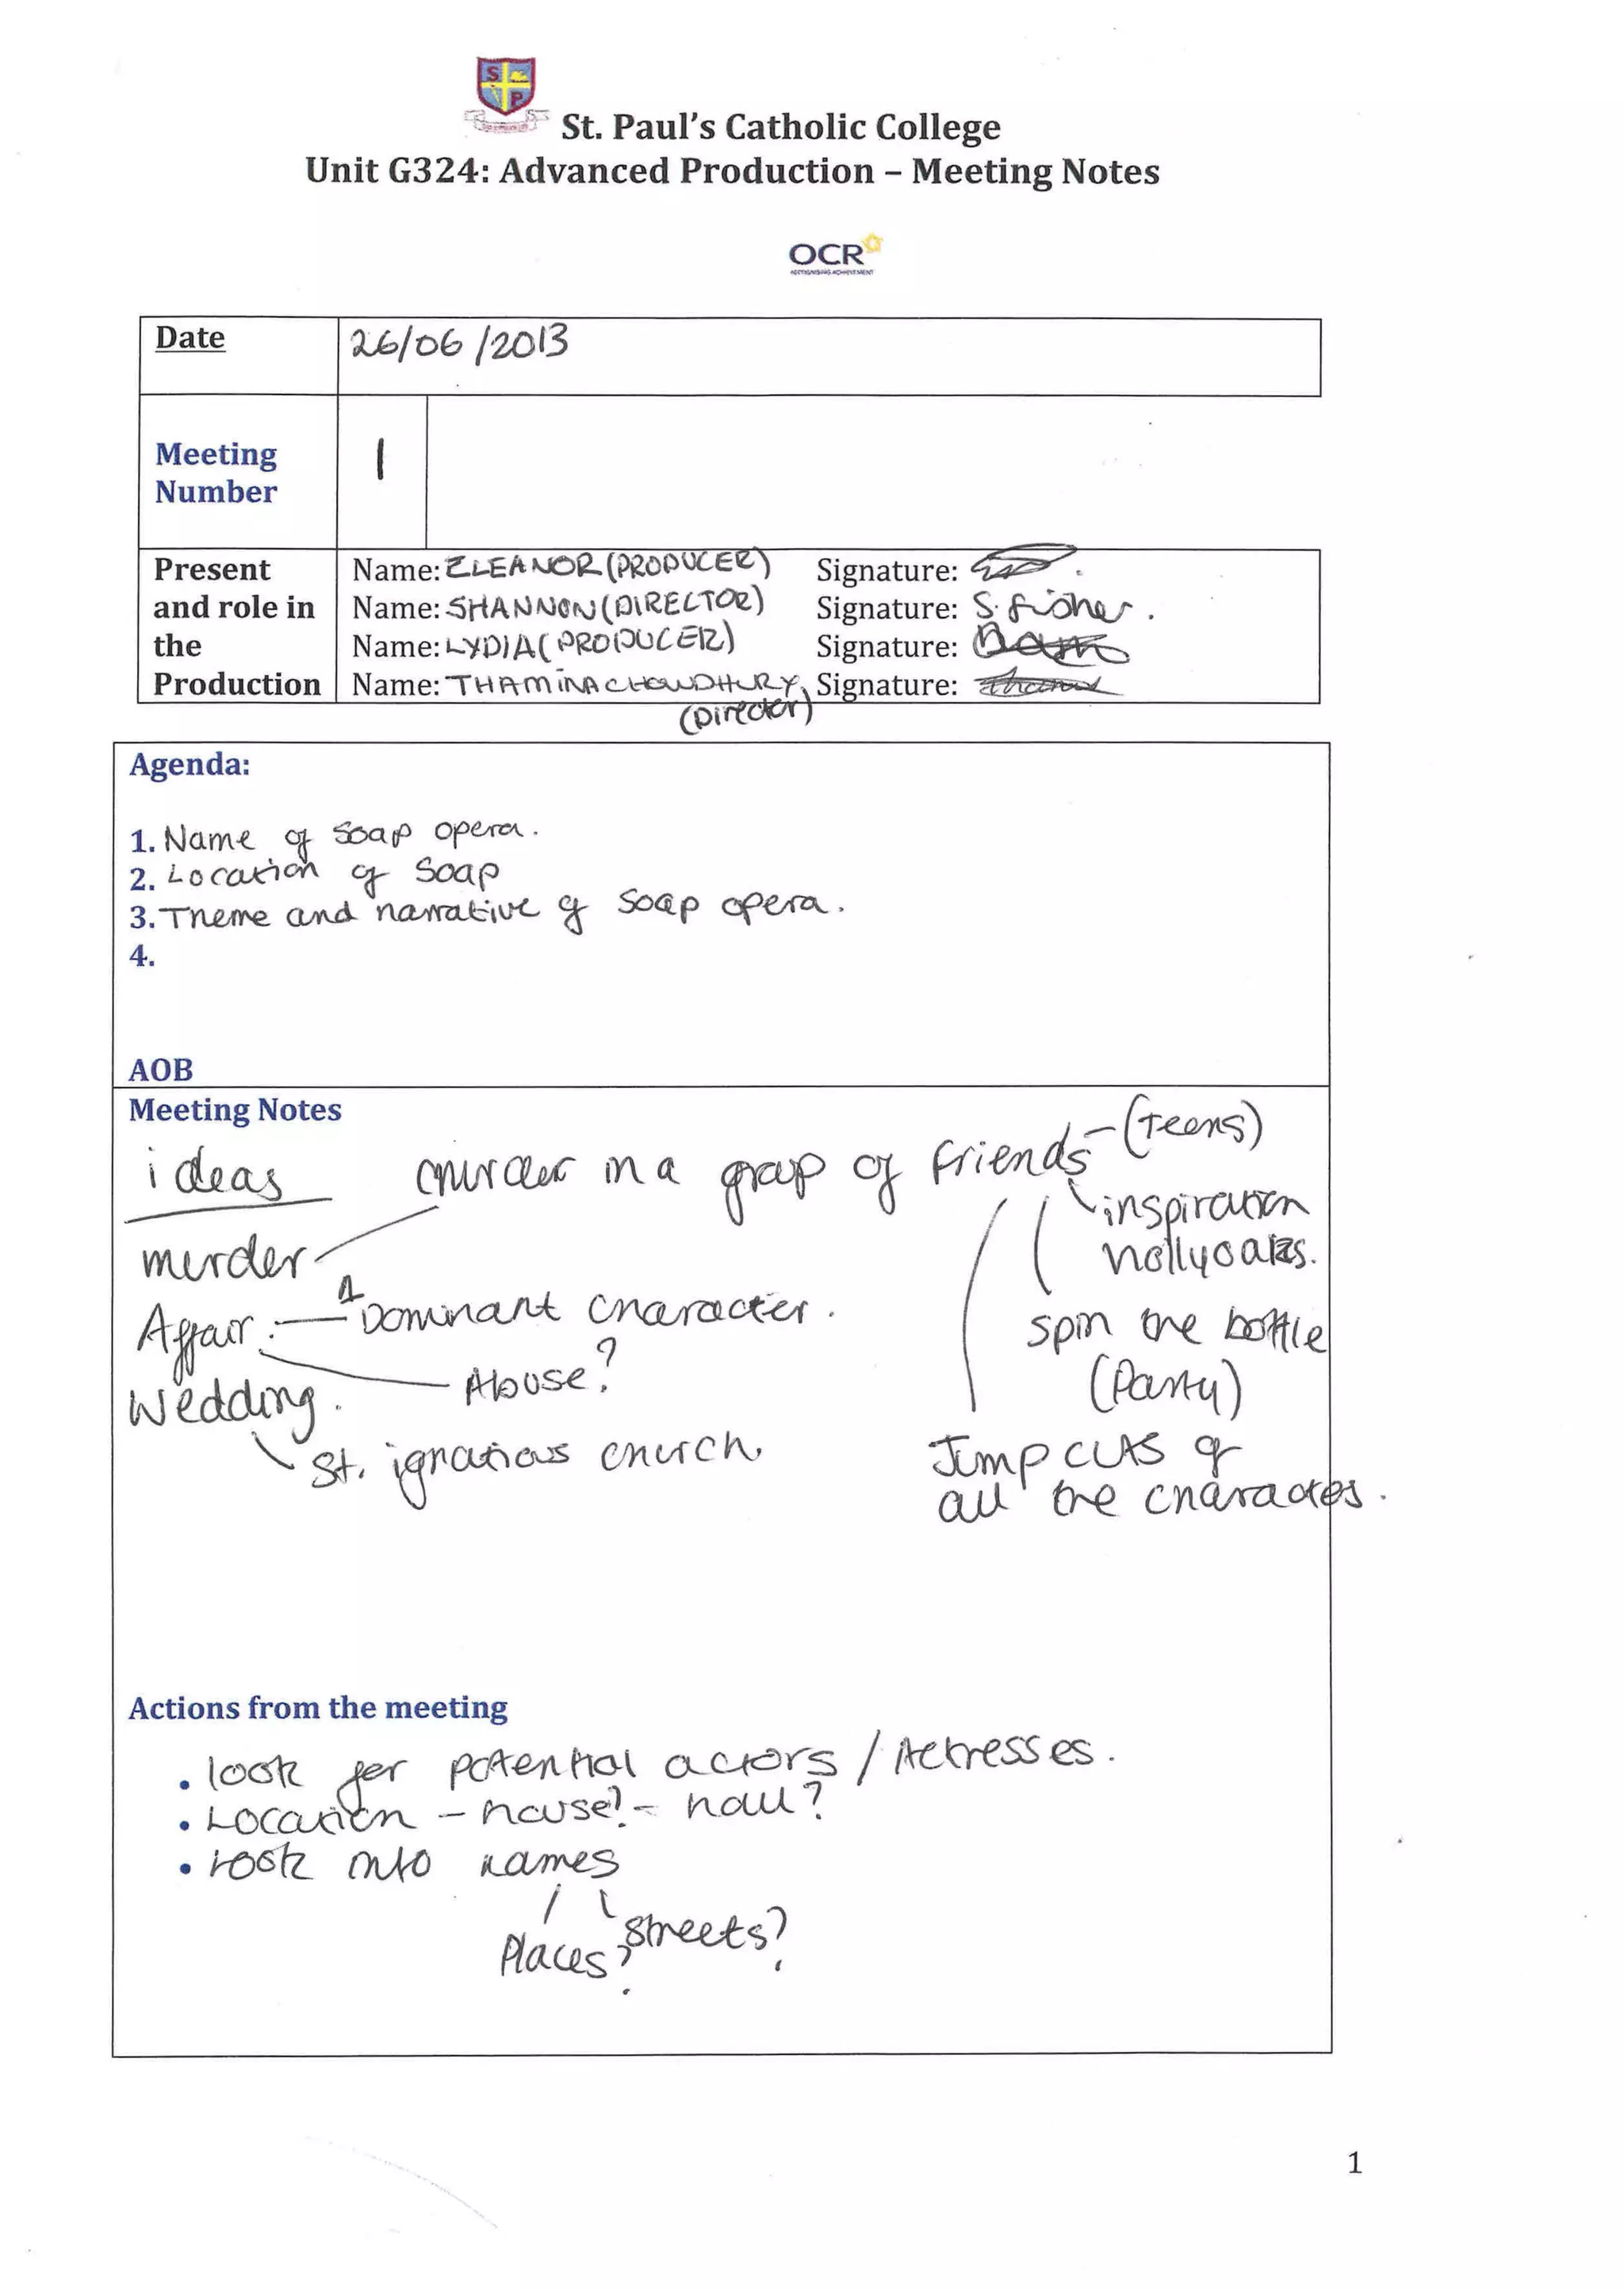 S P
St. Paul's Catholic College
Unit G324: Advanced Production – Meeting Notes
OCR
RECOGNISING ACHIEVEMENT
Date 26/06/2013
Meeting Number 1
Present and role in the Production
Name: ELEANOR (PRODUCER) Signature:
Name: SHANNON (DIRECTOR) Signature: S. Fisher.
Name: LYDIA (PRODUCER) Signature:
Name: THAMINA CHOWDHURY (Director) Signature:
Agenda:
1. Name of Soap opera.
2. Location of Soap
3. Theme and narrative of Soap opera.
4.
AOB
Meeting Notes
ideas
murder in a group of friends - (Teens)
inspiration
hollyoaks.
murder
Affair. — Dominant character.
spin the bottle
(Party)
Abuse?
Wedding.
St. ignatious church,
Jump cuts of
all the charactes.
Actions from the meeting
• look for potential actors / Actresses.
• Location – house? – hall?
• look into names
Places? Streets?
1